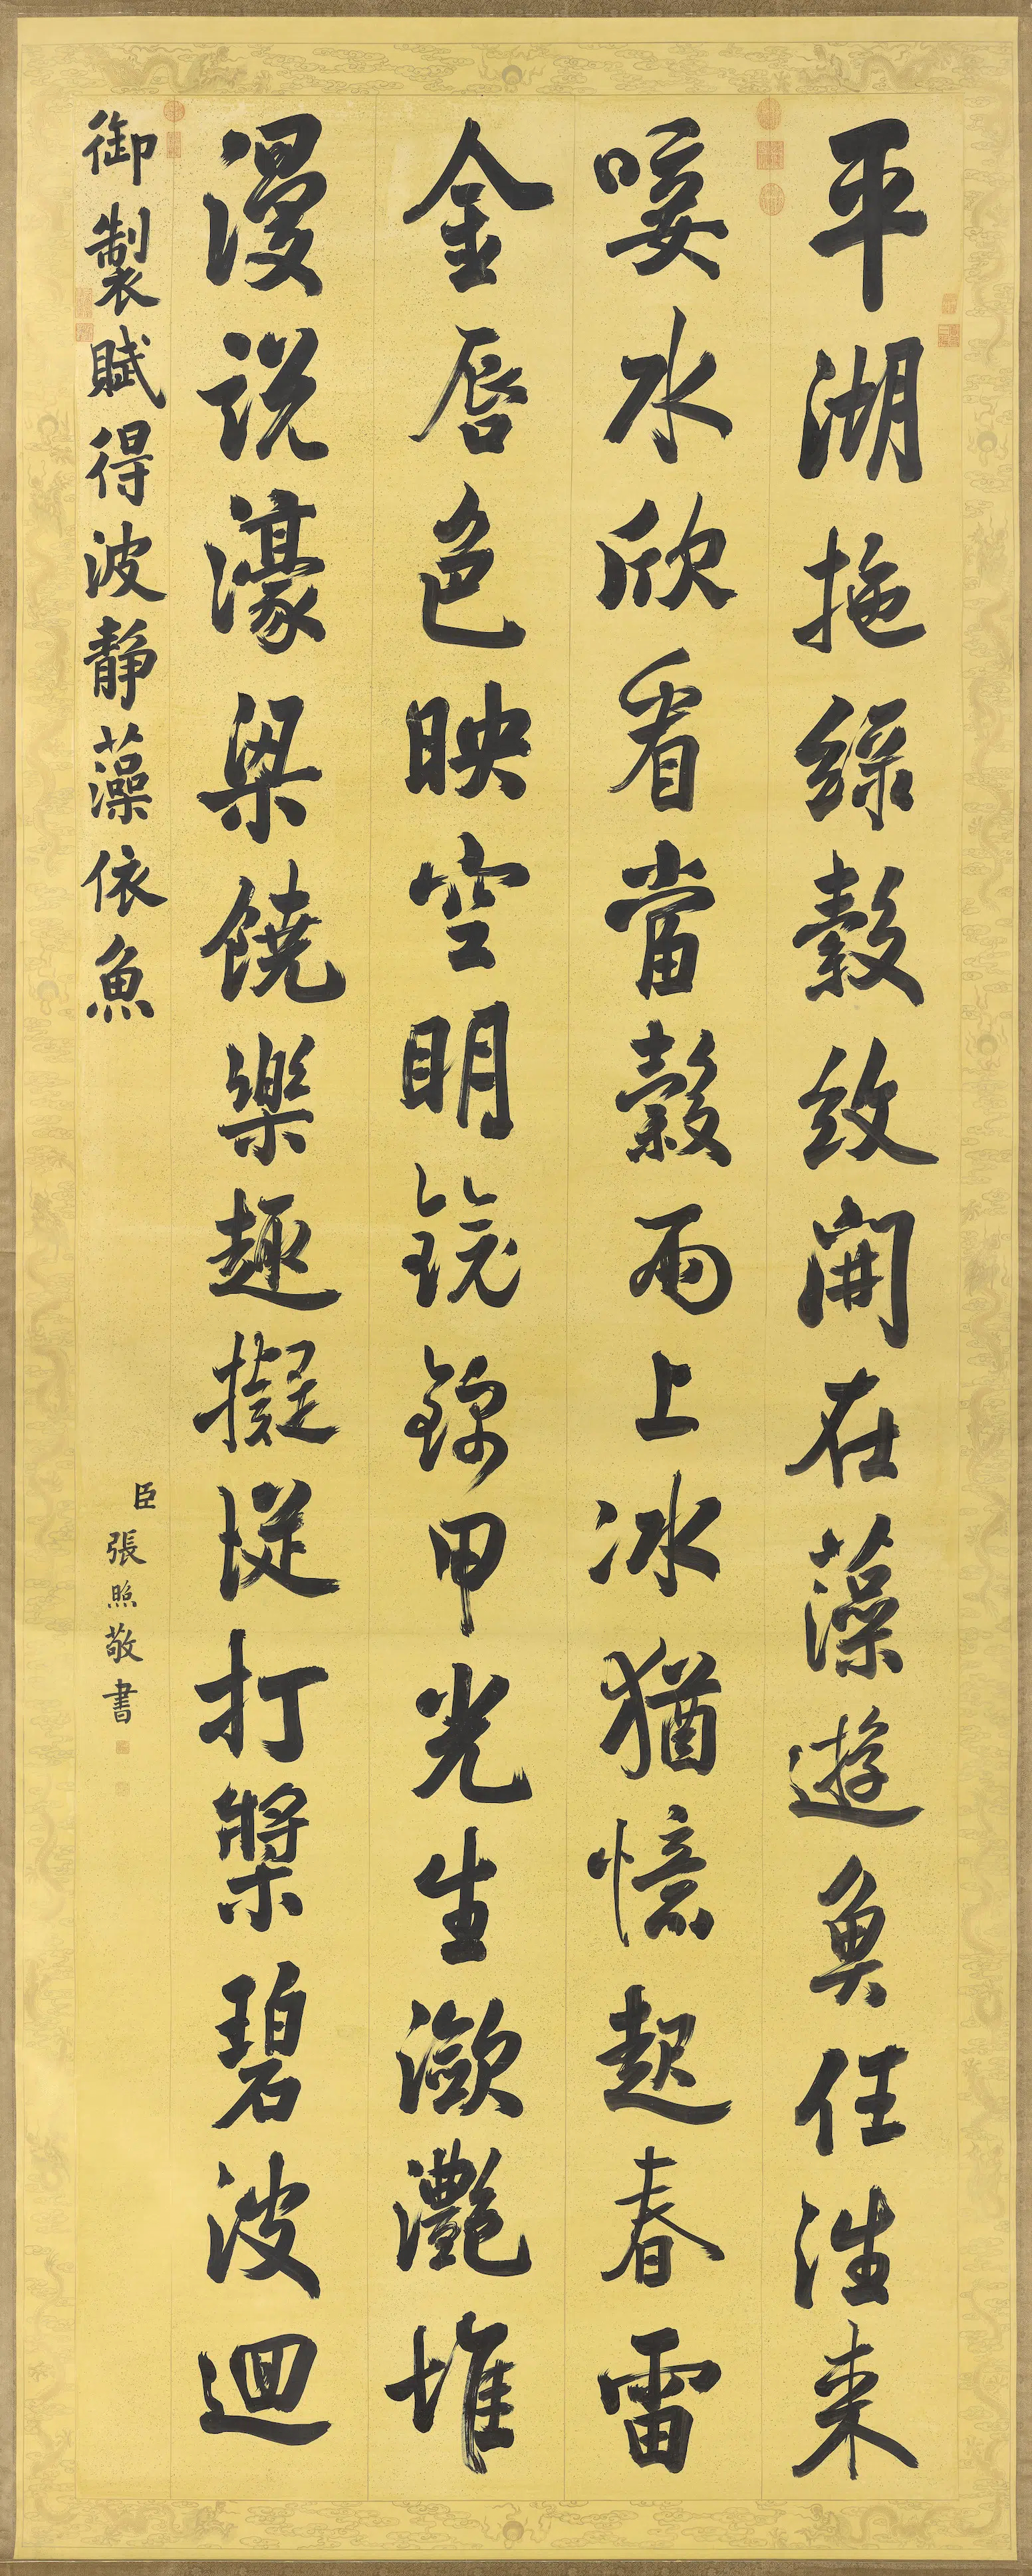 平湖拖綠縠紋開在藻遊魚任往来
唼水欣看當穀雨上冰猶憶起春雷
金唇色映空明鏡錦甲光生瀲灩堆
漫説濠梁饒樂趣擬從打槳碧波迴
御製賦得波靜藻依魚
臣張照敬書